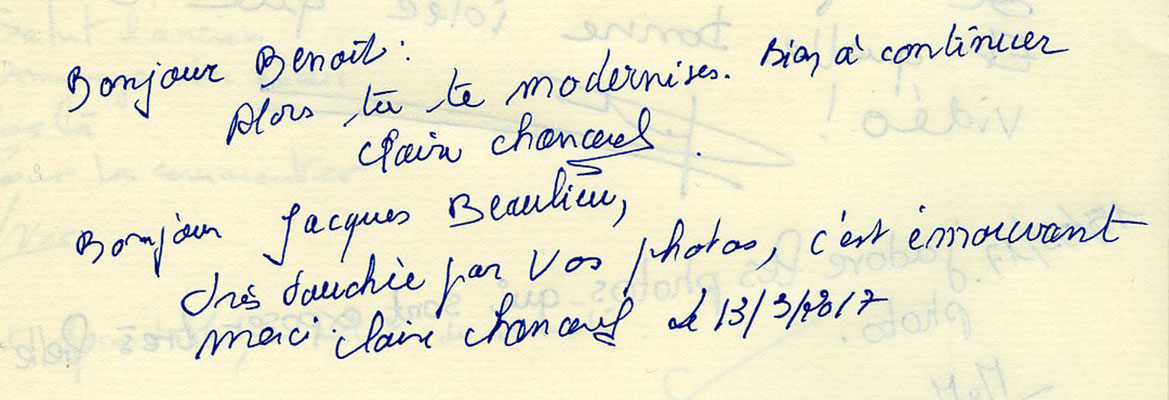 Bonjour Benoît :
Alors tu te modernises. Bien à continuer
Claire
Bonjour Jacques Beaulieu,
très touchée par vos photos, c'est émouvant
merci Claire le 13/3/2017